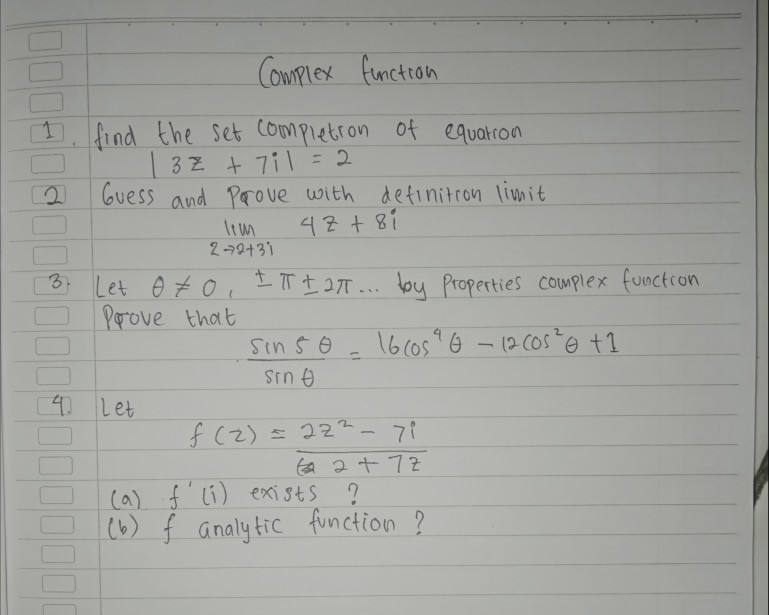 Complex function
1. find the set completion of equation
| 3z + 7i | = 2
2 Guess and Prove with definition limit
lim 4z + 8i
z→2+3i
3. Let θ ≠ 0, ± π ± 2π... by Properties complex function
Prove that
sin 5 θ / sin θ = 16 cos⁴ θ − 12 cos² θ + 1
4. Let
f (z) = 2z² − 7i / 2 + 7z
(a) f'(i) exists ?
(b) f analytic function ?